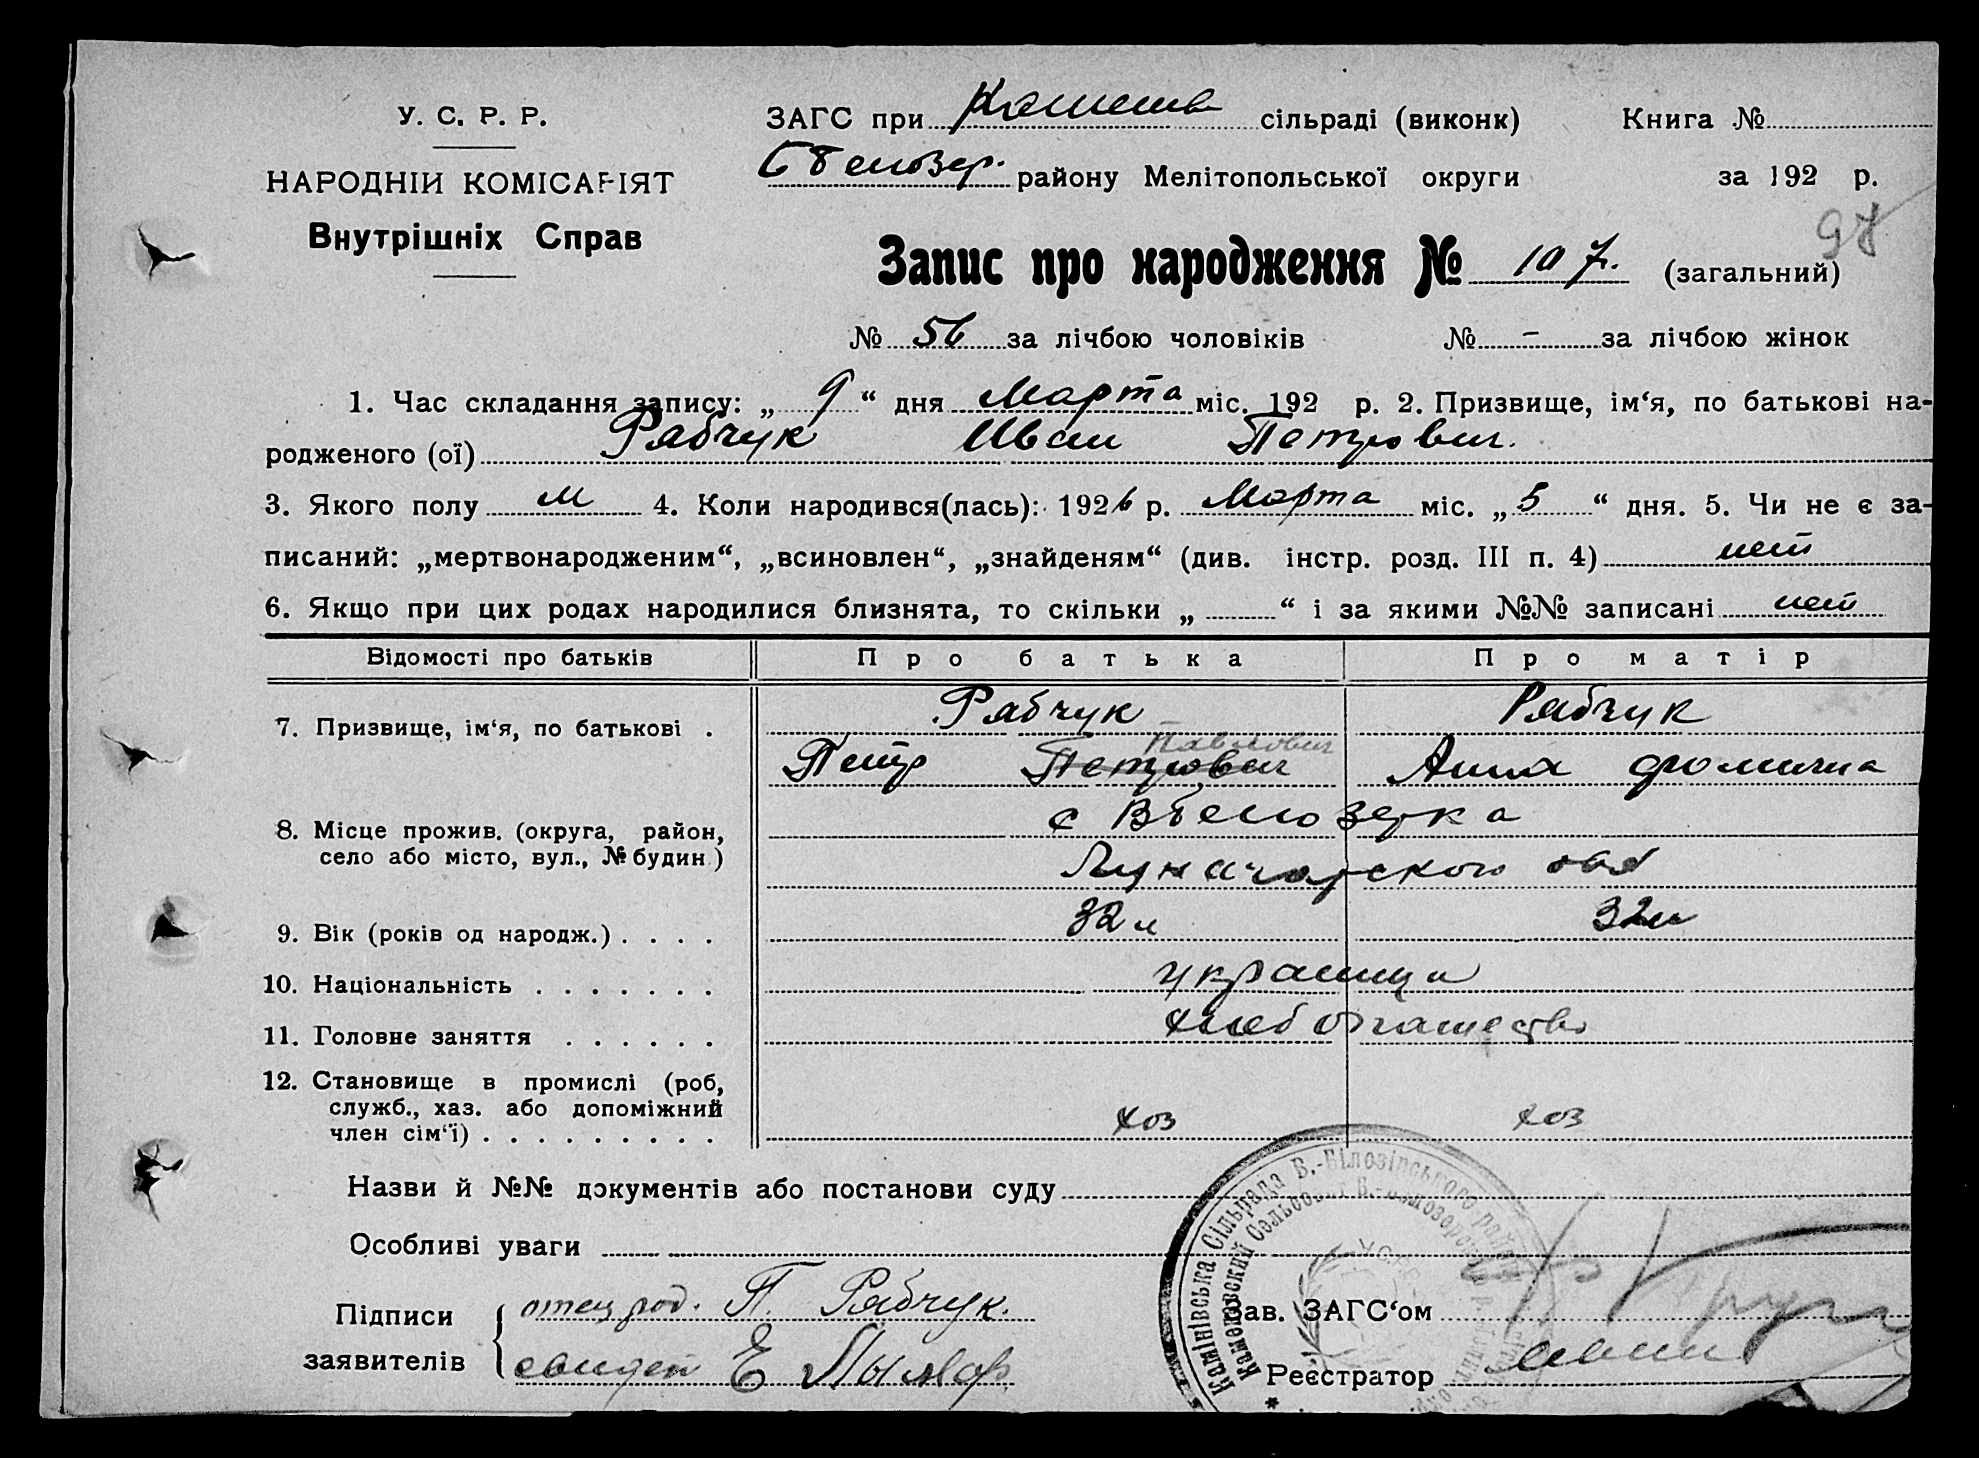 У. С. Р. Р.
НАРОДНІЙ КОМІСАРІЯТ
Внутрішніх Справ
ЗАГС при Каменов сільраді (виконк) Книга №
Белозер. району Мелітопольської округи за 192 р.
97
Запис про народження № 107. (загальний)
№ 56 за лічбою чоловіків № - за лічбою жінок
1. Час складання запису: „ 9 “ дня Марта міс. 192 р. 2. Призвище, ім‘я, по батькові на-
родженого (ої) Рябчук Иван Петрович.
3. Якого полу м 4. Коли народився(лась): 1926 р. Марта міс. „ 5 “ дня. 5. Чи не є за-
писаний: „мертвонародженим“, „всиновлен“, „знайденям“ (див. інстр. розд. III п. 4) нет
6. Якщо при цих родах народилися близнята, то скільки „ “ і за якими №№ записані нет
Відомості про батьків Про батька Про матір
7. Призвище, ім‘я, по батькові . Рябчук Рябчук
Павлович
Петр Петрович Анна Фоминична
8. Місце прожив. (округа, район, село або місто, вул., № будин.) с ВБелозерка
Луначарского
9. Вік (років од народж.) . . . . 32 л 32 л
10. Національність . . . . . . . украинцы
11. Головне заняття . . . . . . хлебопашество
12. Становище в промислі (роб,
служб., хаз. або допоміжний
член сім‘ї) . . . . . . . . . хоз хоз
Назви й №№ документів або постанови суду
Особливі уваги
Підписи отец род. П. Рябчук.
заявителів свидет Е
Зав. ЗАГС‘ом
Реєстратор
Камінівська Сільрада В.-Білозірського району
Каменовский Сельсовет В.-Белозерского р.
У.С.Р.Р.